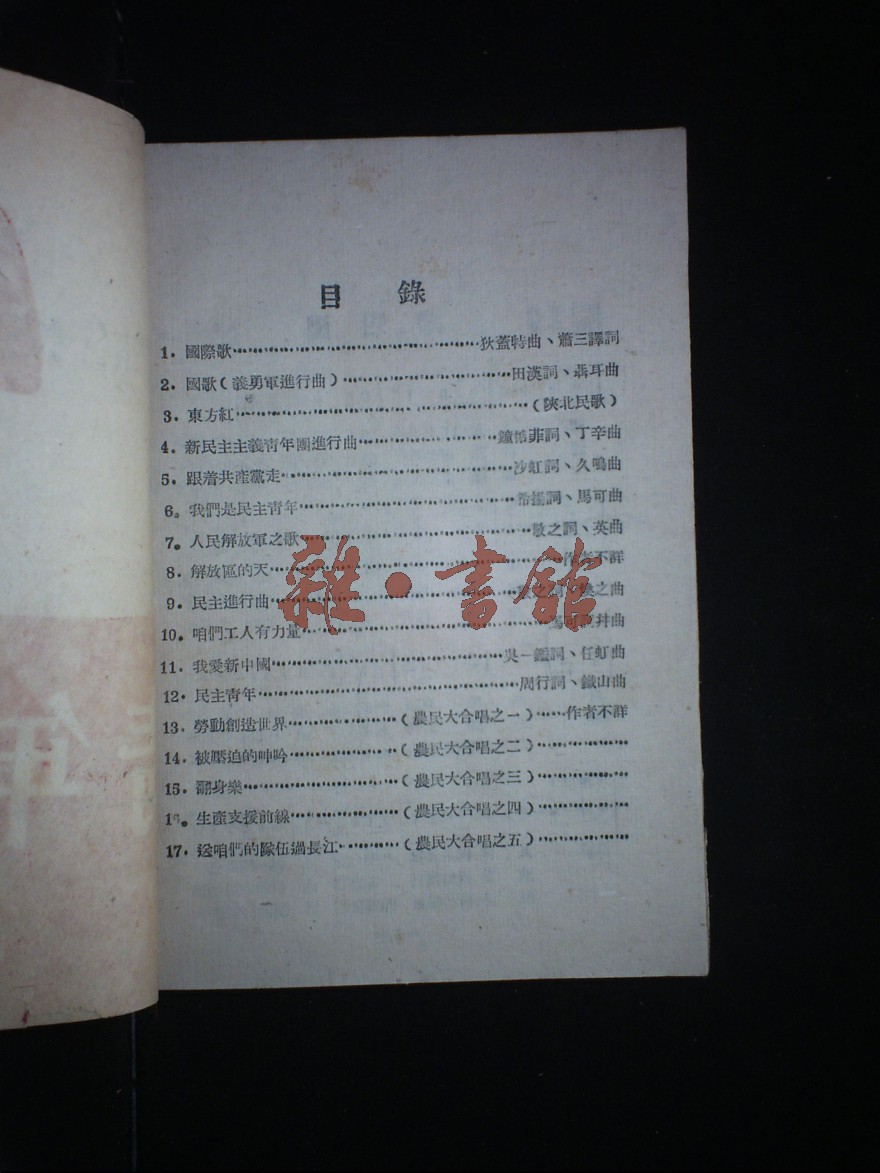 目錄
1. 國際歌……狄蓋特曲、蕭三譯詞
2. 國歌(義勇軍進行曲)……田漢詞、聶耳曲
3. 東方紅……(陝北民歌)
4. 新民主主義青年團進行曲……詞、丁辛曲
5. 跟着共產黨走……沙虹詞、久鳴曲
6. 我們是民主青年……詞、馬可曲
7. 人民解放軍之歌……敬之詞、英曲
8. 解放區的天……作者不詳
9. 民主進行曲……之曲
10. 咱們工人有力量……馬可
11. 我愛新中國……吳一鑑詞、任虹曲
12. 民主青年……周行詞、鐵山曲
13. 勞動創造世界……(農民大合唱之一)……作者不詳
14. 被壓迫的呻吟……(農民大合唱之二)……
15. 翻身樂……(農民大合唱之三)……
16. 生產支援前線……(農民大合唱之四)……
17. 送咱們的隊伍過長江……(農民大合唱之五)……
雜·書館
年